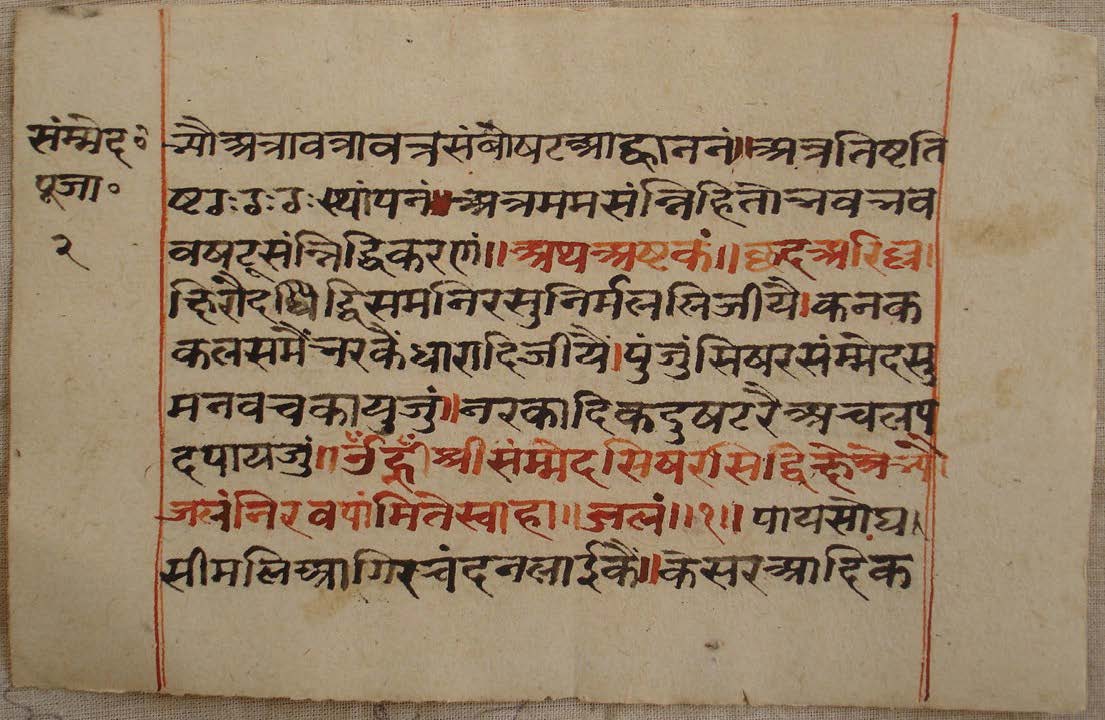 संम्मेद॰
पूजा॰
२
भ्यौअत्रावत्रावत्रसंबोषटआह्वाननं॥अत्रतिष्टति
ष्टठःठःठःस्थांपनं॥अत्रममसंन्निहितोभवभव
वषट्संन्निद्धिकरणं॥अथअष्टकं॥छदअरिल्ल।
समनिरसुनिर्मललिजीयै।कनक
कलसमैंभरकैंधारादिजीयैं।पुंजुंसिषरसंम्मेदसु
मनवचकायुजुं॥नरकादिकदुषटरैअचलप
दपायजुं॥ॐह्रींश्रीसंम्मेदसिषरसिद्धिक्षेत्रेभ्यो
जलंनिरवपांमितेस्वाहा॥जलं॥१॥पायसोघ।
सीमलिआगिरचंदनलाईकैं॥केसरआदिक